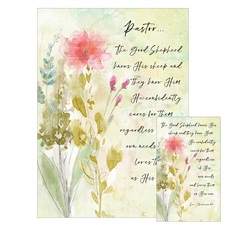 Pastor...
The Good Shepherd
knows His sheep and
they know Him.
He confidently
cares for them
regardless
own needs
loves th
as His
The Good Shepherd knows His
sheep and they know Him.
He confidently
cares for them
regardless of
His own
needs
and loves
them as
His own.